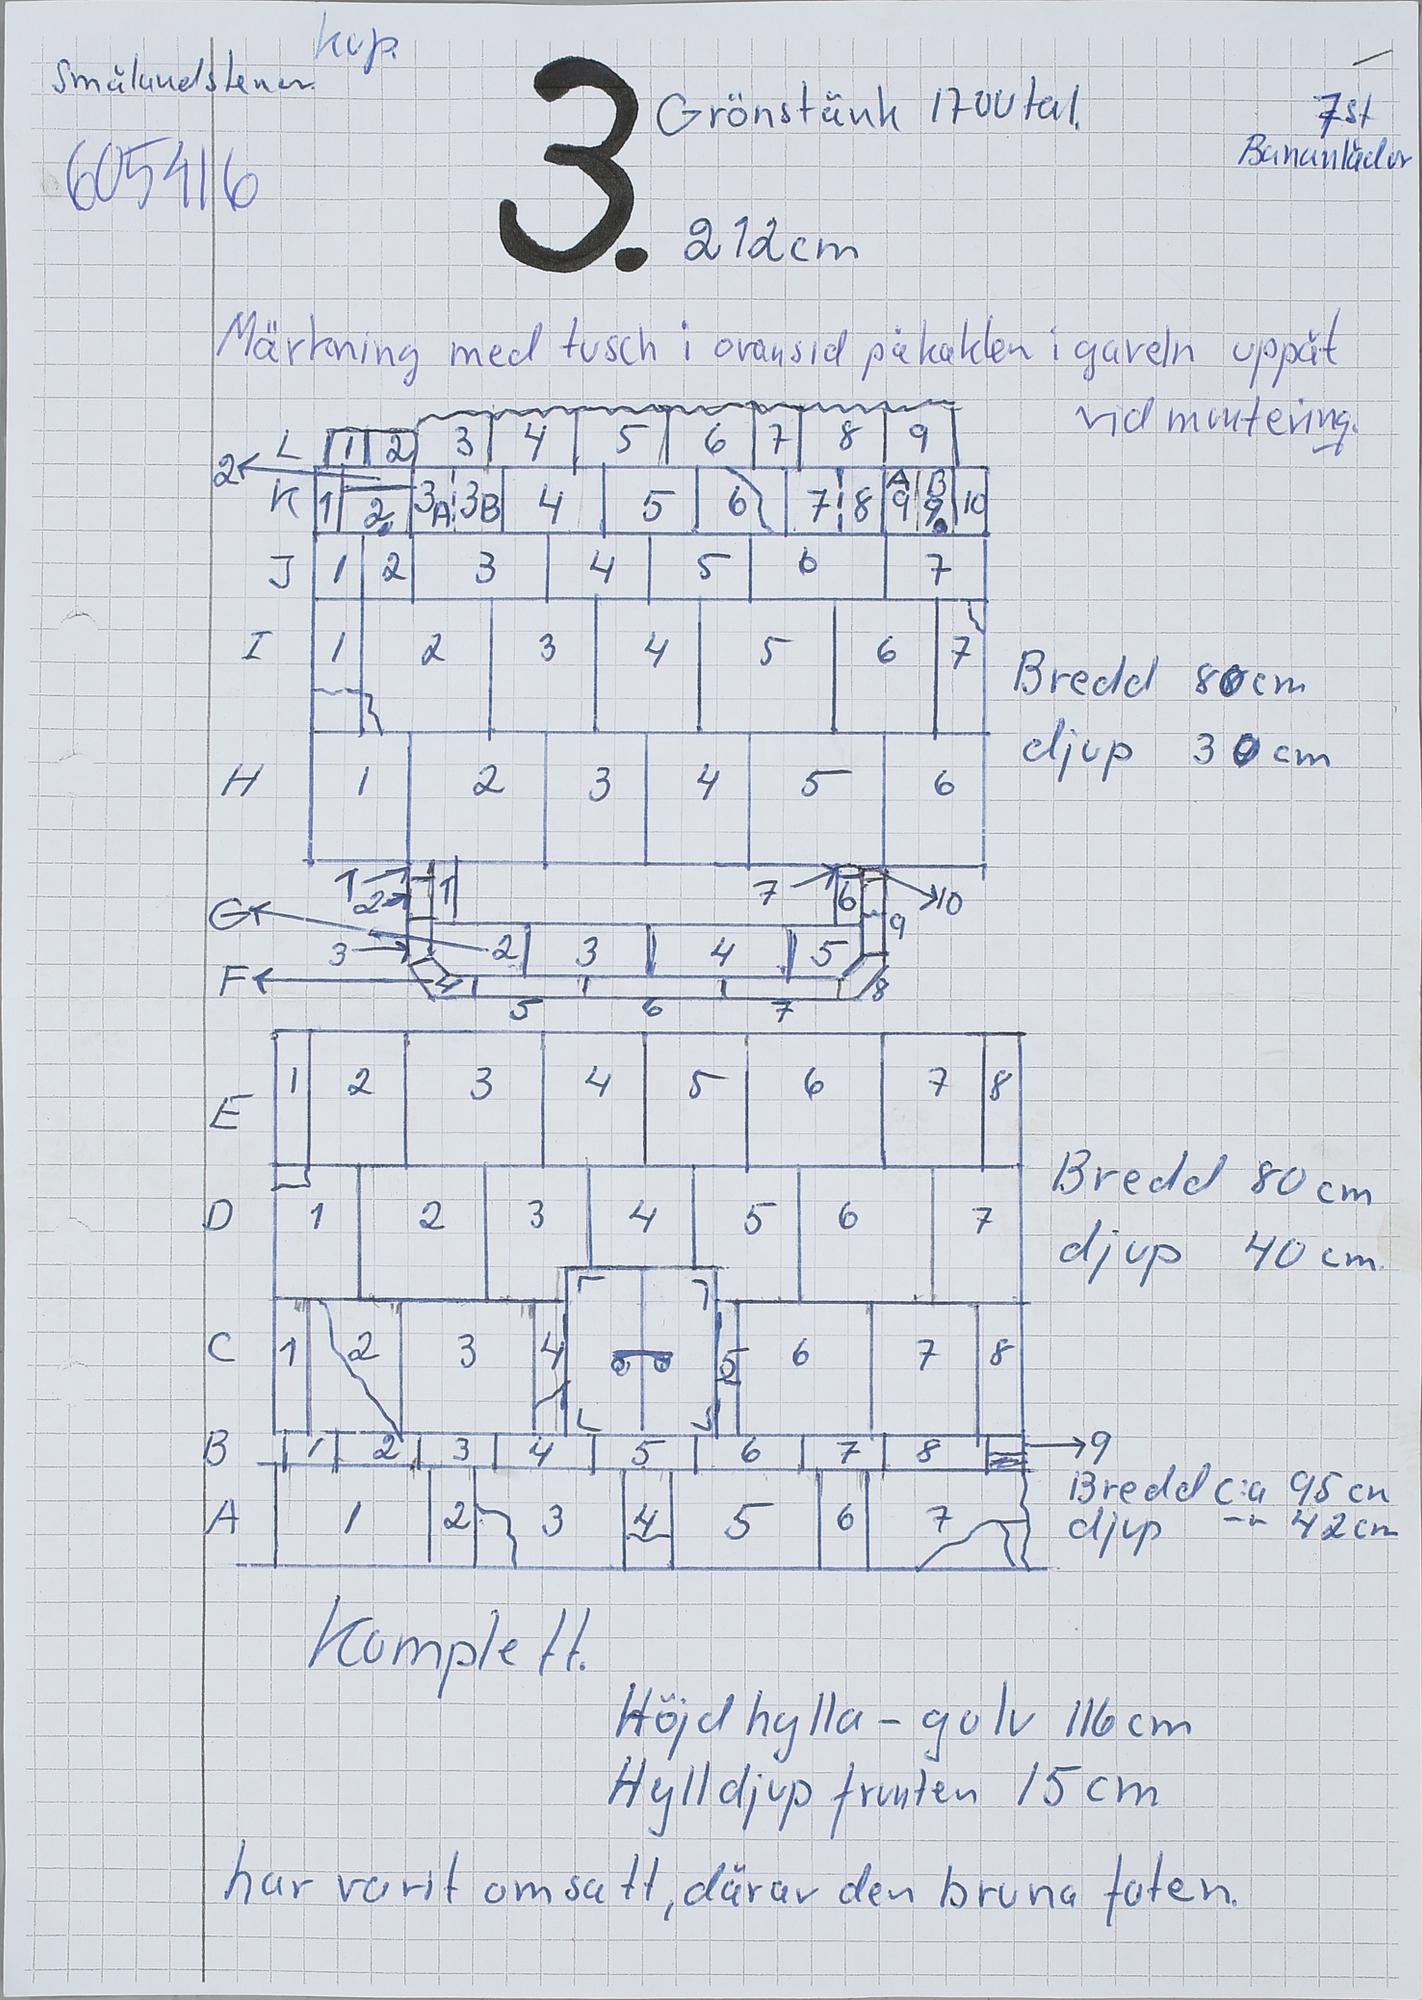 kup.
Smålandstenar.
3.
Grönstänk 1700tal.
7st
Bananlådor
605416
212cm
Märkning med tusch i ovansid på kaklen i gaveln uppåt
vid muntering.
L 1 2 3 4 5 6 7 8 9
2
K 1 2. 3A 3B 4 5 6 7 8 A9 B9 10
J 1 2 3 4 5 6 7
I 1 2 3 4 5 6 7
Bredd 80cm
djup 30cm
H 1 2 3 4 5 6
1 1 7 6 10
2
G 2 3 4 5 9
3
F 4 8
5 6 7
E 1 2 3 4 5 6 7 8
D 1 2 3 4 5 6 7
Bredd 80cm
djup 40cm.
C 1 2 3 4 5 6 7 8
B 1 2 3 4 5 6 7 8 9
A 1 2 3 4 5 6 7
Bredd c:a 95cm
djup -"- 42cm
Komplett.
Höjd hylla - golv 116cm
Hylldjup frunten 15cm
har varit omsatt, därav den bruna foten.